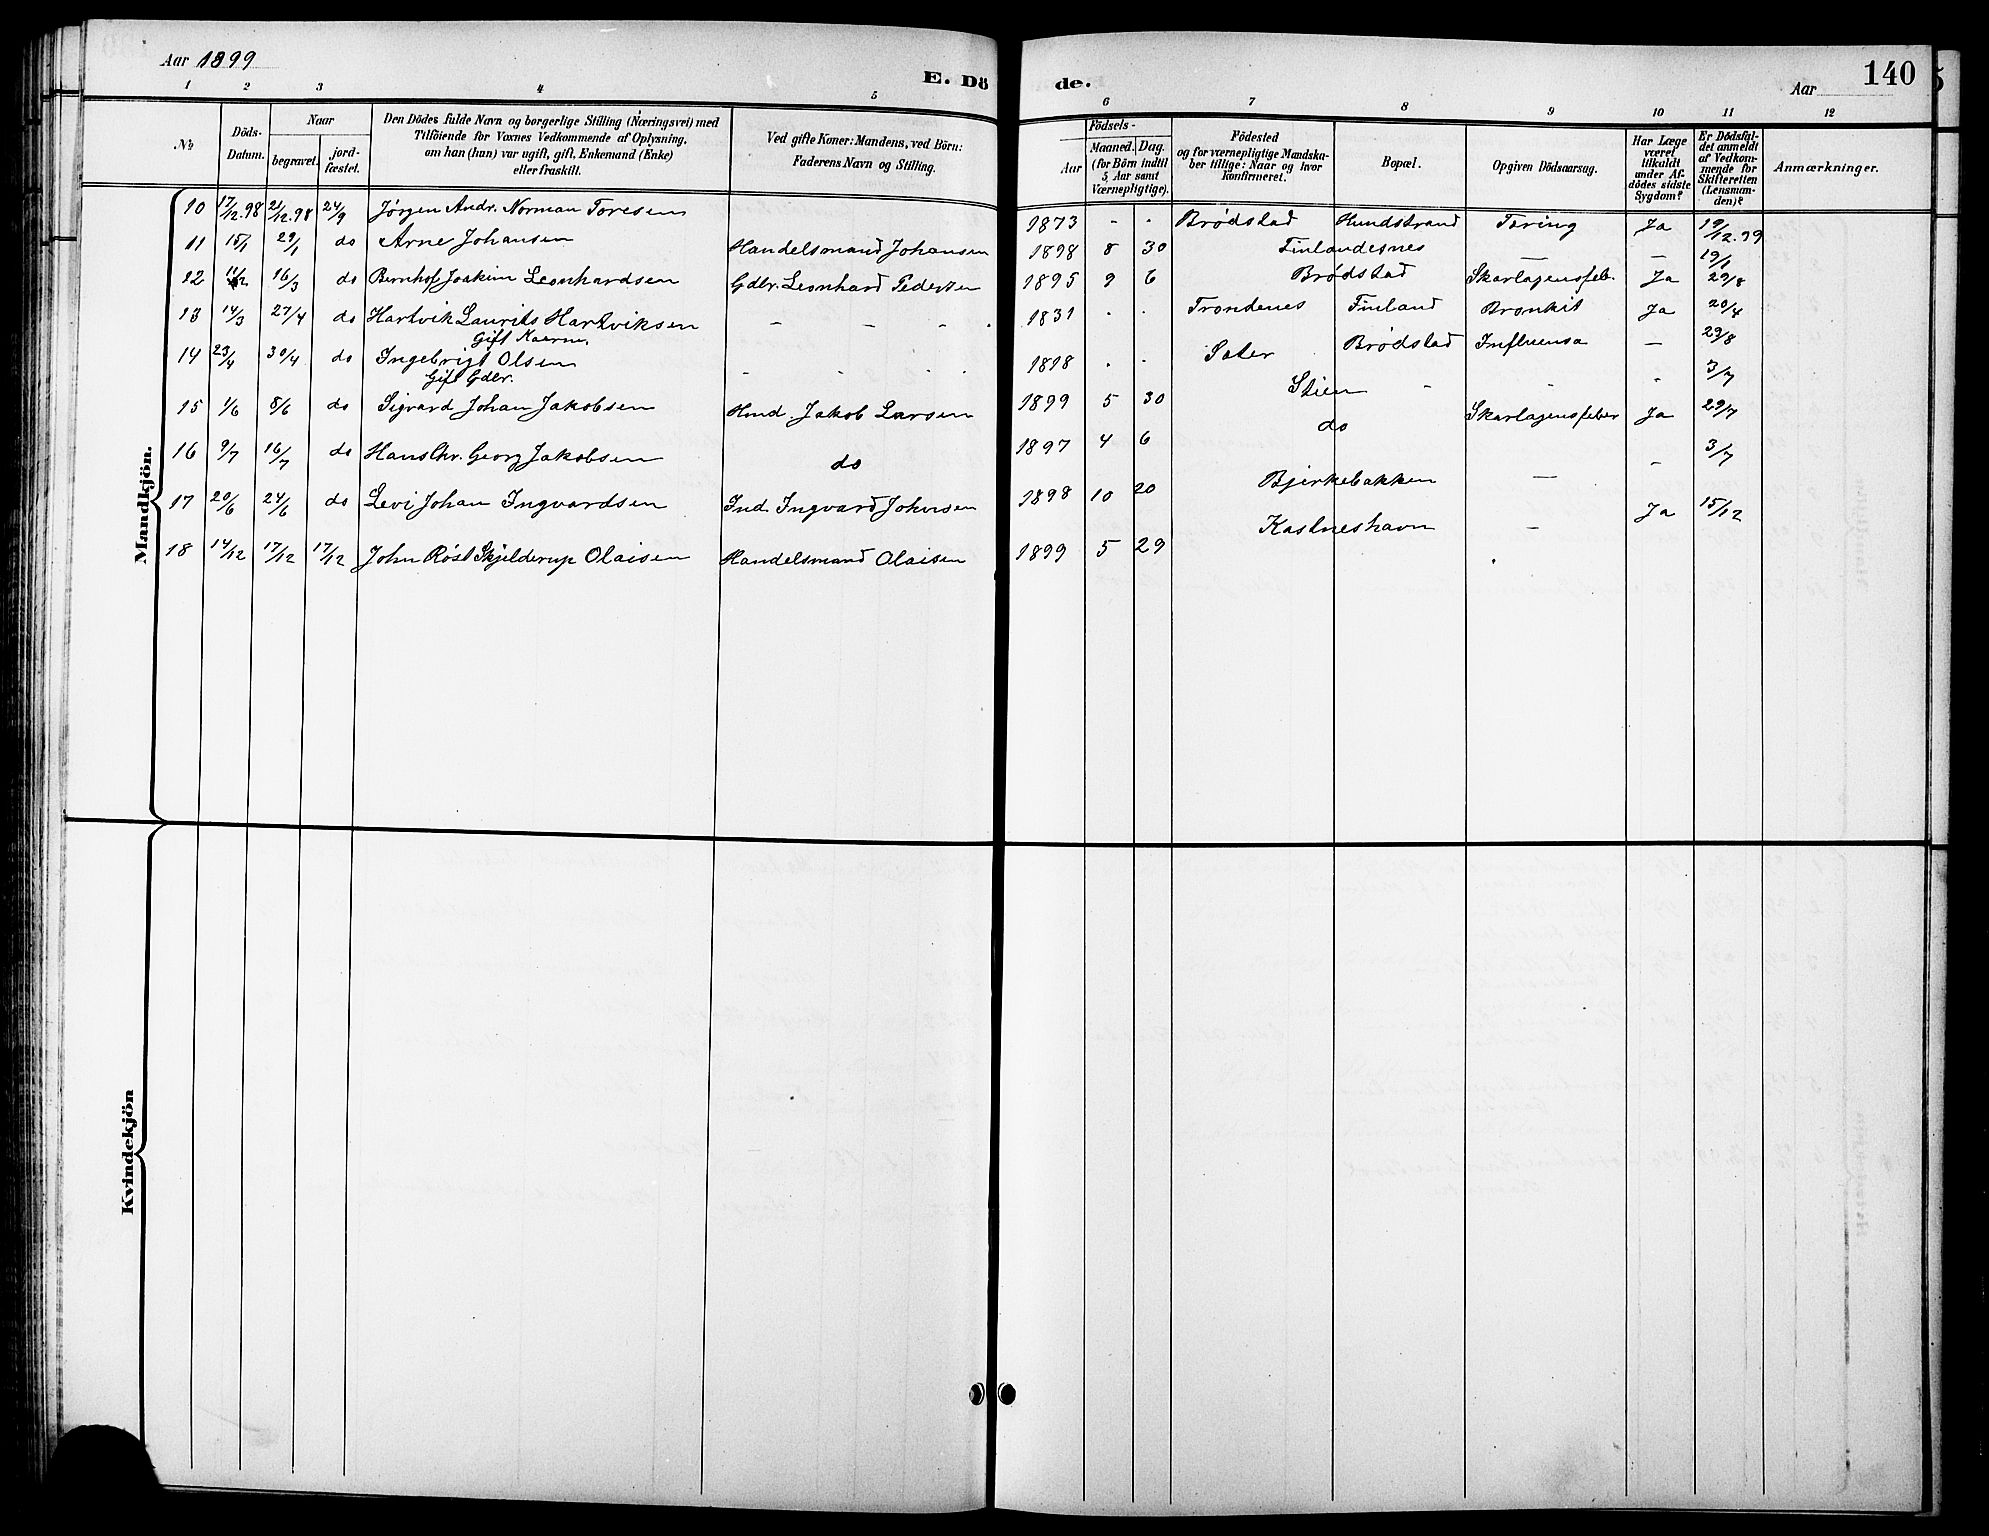 Aar 1899
E. Dö de.
Aar
140
1 2 3 4 5 6 7 8 9 10 11 12
No
Döds-Datum.
Naar
begravet.
jord-fæstet.
Den Dödes fulde Navn og borgerlige Stilling (Næringsvei) med
Tilföiende for Voxnes Vedkommende af Oplysning,
om han (hun) var ugift, gift, Enkemand (Enke)
eller fraskilt.
Ved gifte Koner: Mandens, ved Börn:
Faderens Navn og Stilling.
Födsels-
Aar
Maaned. Dag.
(for Börn indtil
5 Aar samt
Værnepligtige).
Födested
og for værnepligtige Mandska-
ber tillige: Naar og hvor
konfirmeret.
Bopæl.
Opgiven Dödsaarsag.
Har Læge
været
tilkaldt
under Af-
dödes sidste
Sygdom?
Er Dödsfal-
det anmeldt
af Vedkom-
mende for
Skifteretten
(Lensman-
den)?
Anmærkninger.
Mandkjön.
10 17/12.98 21/12.98 24/9 Jørgen Andr. Norman Toresen 1873 - - Brødstad Hundstrand Tæring Ja 19/12.99
11 15/1 29/1 do Arne Johansen Handelsmand Johansen 1898 8 30 Finlandesnes — — 19/1
12 16/3 do Bernhof Joakim Leonhardsen Gdbr. Leonhard Pedersen 1895 9 6 Brødstad Skarlagensfeb. Ja 29/8
13 14/3 27/4 do Hartvik Laurits Hartviksen — — — 1831 - - Trondenes Finland Bronkit Ja 20/4
Gift
14 23/4 30/4 do Ingebrigt Olsen - - - - 1818 - - Sater Brødstad Influensa — 29/8
Gift Gdbr.
15 1/6 8/6 do Sigvard Johan Jakobsen Hmd. Jakob Larsen 1899 5 30 Stien - - - 3/7
16 9/7 16/7 do Hans Chr. Georg Jakobsen do 1897 4 6 do Skarlagensfeber Ja 29/7
17 20/6 24/6 do Levi Johan Ingvardsen Ind. Ingvard Johnsen 1898 10 20 Bjerkebakken — - 3/7
18 14/12 17/12 17/12 John Røst Skjelderup Olaisen Handelsmand Olaisen 1899 5 29 Kastneshavn — Ja 15/12
Kvindekjön